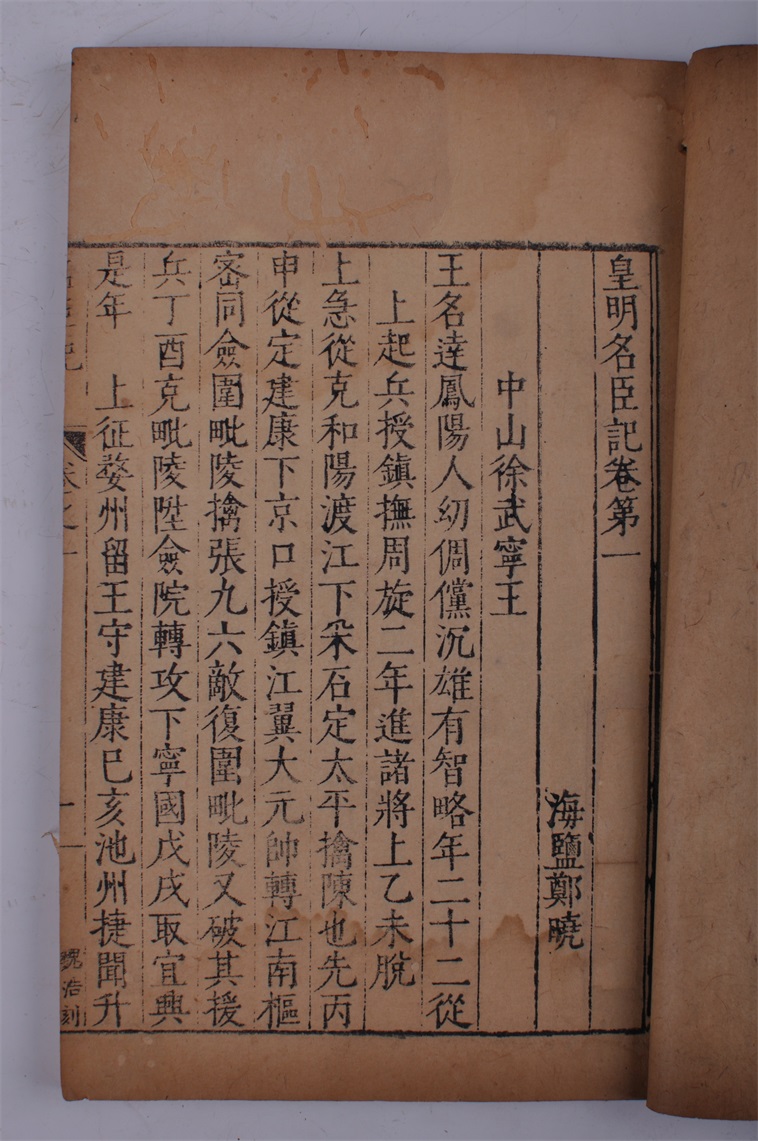 皇明名臣記卷第一
海鹽鄭曉
中山徐武寧王
王名達鳳陽人幼倜儻沉雄有智略年二十二從
上起兵授鎮撫周旋二年進諸將上乙未脫
上急從克和陽渡江下采石定太平擒陳也先丙
申從定建康下京口授鎮江翼大元帥轉江南樞
密同僉圍毗陵擒張九六敵復圍毗陵又破其援
兵丁酉克毗陵陞僉院轉攻下寧國戊戌取宜興
是年 上征婺州留王守建康巳亥池州捷聞升
名臣記 卷之一 一
魏浩刻